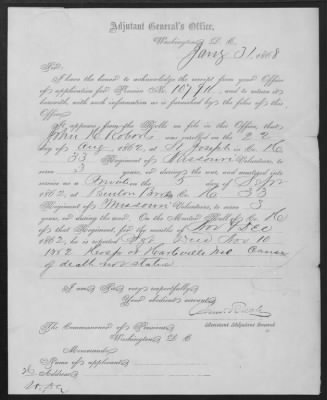 Adjutant General's Office,
Washington, D. C.
Jany 31, 1868
Sir:
I have the honor to acknowledge the receipt from your Office
of application for Pension No. 10791, and to return it
herewith, with such information as is furnished by the files of this
Office.
It appears from the Rolls on file in this Office, that
John H. was enrolled on the 22
day of Aug, 1862, at St Joseph in Co. K
33 Regiment of Missouri Volunteers, to
serve 3 years, or during the war, and mustered into
service as a Private on the day of Sept
1862, at Benton Brks, Co. K, 33
Regiment of Missouri Volunteers, to serve 3
years, or during the war. On the Muster Roll of Co. K
of that Regiment, for the months of Nov & Dec
1862, he is reported Died Nov 10
1862 Hosp at Mo Cause
of death not stated
I am, Sir, very respectfully,
Your obedient servant,
Assistant Adjutant General
The Commissioner of Pensions,
Washington, D. C.
Memoranda:
Name of applicant
Address